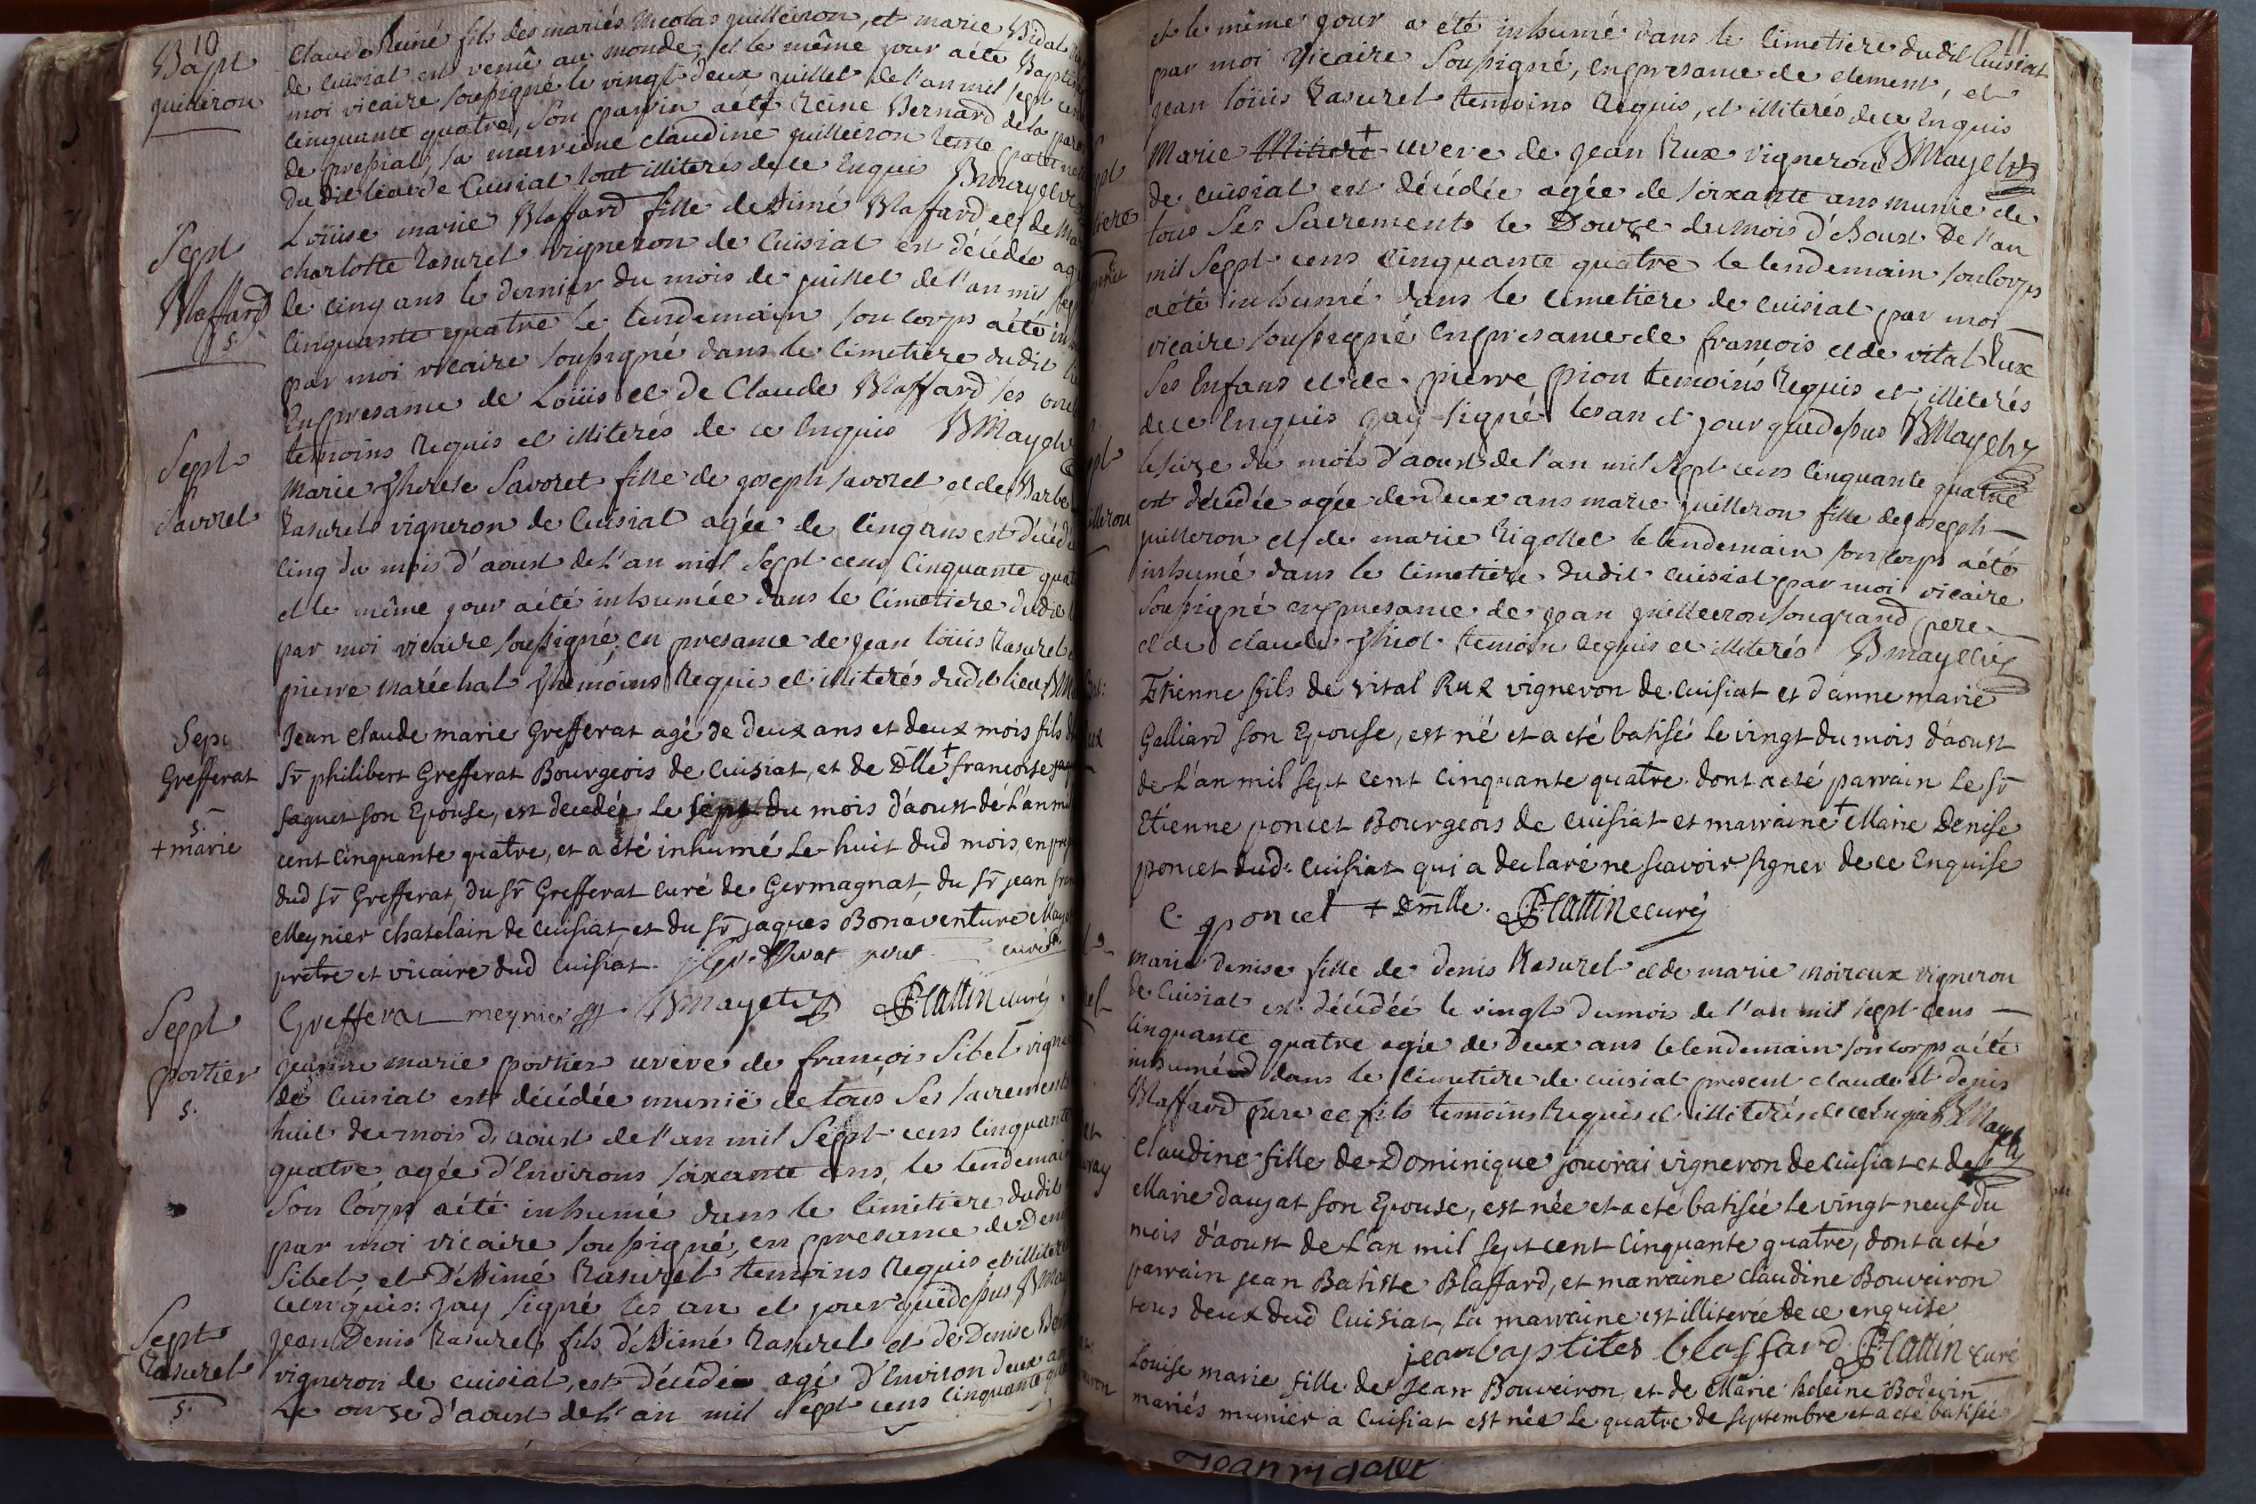 10
Bapt
quilleiron
Claude Reiné fils des mariés Nicolas quilleiron, et marie Vidal
de Cuisiat est venû au monde, et le même jour aété Baptisé
moi vicaire soussigné le vingt deux juillet de l'an mil sept cens
cinquante quatre, son parrin aété Reine Bernard de la
de pressiat, sa marreine claudine quilleiron tente paternelle
du dit lieu de Cuisiat tout illiterés de ce Enquis BMayet
Sept
Blaffard
s.
Loüise marie Blaffard fille de Aimé Blaffard et de
charlotte Rasurel vigneron de Cuisiat est décédée agée
de cinq ans le dernier du mois de juillet de l'an mil sept
cinquante quatre le lendemain son corps aété
par moi vicaire soussigné dans le cimetiere dudit
En presance de Loüis et de Claude Blaffard ses
temoins Requis et illiterés de ce Enquis BMayet
Sept
Savorel
Marie Therese Savoret fille de joseph savoret et de Barbe
Rasurel vigneron de Cuisiat agée de cinq ans est décédée
cinq du mois d'aoust de l'an mil Sept cens Cinquante quatre
et le même jour aété inhumée dans le Cimetiere dudit
par moi vicaire soussigné, en presance de jean loüis Rasurel
pierre maréchal themoins Requis et illiterés dudit lieu
Sept
Grefferat
s.
+ marie
Jean claude marie Grefferat agé de deux ans et deux mois fils
Sr philibert Grefferat Bourgeois de Cuisiat, et de Dlle + francoise
faguet son Epouse, est decedé Le sept du mois d'aoust de L'an
cent cinquante quatre, et a été inhumé Le huit dud mois, en
dud Sr Grefferat, du Sr Grefferat curé de Germagnat, du Sr jean
Meynier chatelain de cuisiat, et du Sr jaques Bonaventure
prêtre et vicaire dud Cuisiat.
Grefferat meynier BMayet P. Cattin curé
Sept
portier
s.
jeanne marie portier veuve de francois Sibel
de Cuisiat est décédée munie de tous Ses sacrements
huit du mois d'aoust de l'an mil Sept cens Cinquante
quatre, agée d'Environs soixante ans, le lendemain
Son Corps aété inhumé dans le cimetiere dudit
par moi vicaire soussigné, en presance de
Sibel et d'Aimé Rasurel temoins Requis et illiterés
ce Enquis: jay signé les an et jour que dessus
Sept
Rasurel
s.
jean Denis Rasurel fils d'Aimé Rasurel et de Denise
vigneron de cuisiat, est décédé agé d'Environ deux ans
Le onze d'aoust de l'an mil Sept cens cinquante
11
et le même jour a été inhumé dans le Cimetiere dudit Cuisiat
par moi vicaire Soussigné, en presance de clement, et
jean loüis Rasurel temoins Requis, et illiterés de ce Enquis
BMayet
Marie + veuve de jean Rux vigneron
de cuisiat est décédée agée de soixante ans munie de
tous Ses Sacrements le Douze du mois d'Aoust De l'an
mil Sept cens Cinquante quatre le lendemain son Corps
aété inhumé dans le cimetiere de cuisiat par moi
vicaire soussigné En presance de francois et de vital Rux
Ses Enfans et de pierre pion temoins Requis et illiterés
de ce Enquis jay signé les an et jour que dessus BMayet
Le seize du mois d'aoust de l'an mil sept cens cinquante quatre
est décédée agée de Deux ans marie juilleron fille de joseph
juilleron et de marie Rigollet le lendemain son corps aété
inhumé dans le cimetiere dudit cuisiat par moi vicaire
Soussigné en presance de jean quilleiron son grand pere
et de claude temoins Requis et illiterés BMayet
Etienne fils de vital Rux vigneron de Cuisiat et d'anne marie
Galliard son Epouse, est né et a eté batisé Le vingt du mois d'aoust
de L'an mil sept cent cinquante quatre. dont a eté parrain Le Sr
Etienne poncet Bourgeois de Cuisiat et marraine + Marie Denise
poncet dud. Cuisiat qui a declaré ne scavoir signer de ce Enquise
E. poncet + Dmlle. P. Cattin curé
marie Denise fille de Denis Rasurel et de marie Moireux vigneron
de Cuisiat est décédée le vingt du mois de l'an mil sept cens
cinquante quatre agée de Deux ans le lendemain son corps aété
inhumé dans le cimetiere de cuisiat present claude et Denis
Blaffard pere et fils temoins Requis et illiterés de ce Enquis BMayet
Claudine fille de Dominique jouvrai vigneron de Cuisiat et de
Marie daujat son Epouse, est née et a eté batisée Le vingt neuf du
mois d'aoust de L'an mil sept cent cinquante quatre, dont a eté
parrain jean Batiste Blaffard, et marraine claudine Bouveiron
tous deux dud Cuisiat, La marraine est illiterée de ce enquise
jean baptistes blaffard. P. Cattin curé
Louise marie fille de Jean Bouveiron et de Marie heleine Boitevin
mariés munier a Cuisiat est née Le quatre de septembre et a eté batisée